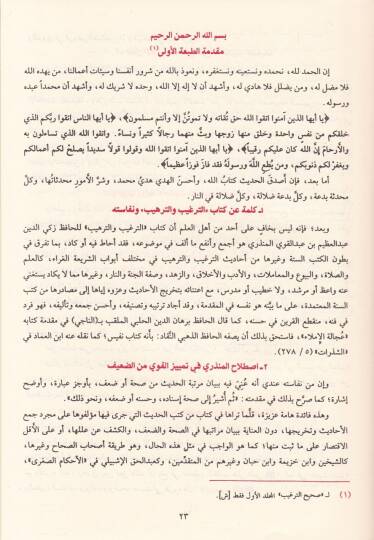 بسم الله الرحمن الرحيم
مقدمة الطبعة الأولى (١)
إن الحمد لله، نحمده ونستعينه ونستغفره، ونعوذ بالله من شرور أنفسنا وسيئات أعمالنا، من يهده الله
فلا مضل له، ومن يضلل فلا هادي له، وأشهد أن لا إله إلا الله، وحده لا شريك له، وأشهد أن محمداً عبده
ورسوله.
﴿يا أيها الذين آمنوا اتقوا الله حق تُقاته ولا تموتُنَّ إلا وأنتم مسلمون﴾، ﴿يا أيها الناس اتقوا ربكم الذي
خلقكم من نفس واحدة وخلق منها زوجها وبثَّ منهما رجالاً كثيراً ونساءً. واتقوا الله الذي تساءلون به
والأرحامَ إنَّ الله كان عليكم رقيباً﴾، ﴿يا أيها الذين آمنوا اتقوا الله وقولوا قولاً سديداً يصلح لكم أعمالكم
ويغفر لكم ذنوبكم، ومن يُطِع اللَّهَ ورسولَهُ فقد فازَ فوزاً عظيماً﴾.
أما بعد، فإن أصدقَ الحديث كتابُ الله، وأحسنَ الهدي هديُ محمد، وشرَّ الأمورِ محدثاتُها، وكلَّ
محدثة بدعة، وكلَّ بدعة ضلالة، وكلَّ ضلالة في النار.
١ـ كلمة عن كتاب «الترغيب والترهيب» ونفاسته
وبعد؛ فإنه ليس بخافٍ على أحد من أهل العلم أن كتاب «الترغيب والترهيب» للحافظ زكي الدين
عبدالعظيم بن عبدالقوي المنذري هو أجمع وأنفع ما ألف في موضوعه، فقد أحاط فيه أو كاد، بما تفرق في
بطون الكتب الستة وغيرها من أحاديث الترغيب والترهيب في مختلف أبواب الشريعة الغراء، كالعلم
والصلاة، والبيوع والمعاملات، والأدب والأخلاق، والزهد، وصفة الجنة والنار، وغيرها مما لا يكاد يستغني
عنه واعظ أو مرشد، ولا خطيب أو مدرس، مع اعتنائه بتخريج الأحاديث وعزوه إياها إلى مصادرها من كتب
السنة المعتمدة، على ما بيَّنه هو نفسه في المقدمة، وقد أجاد ترتيبه وتصنيفه، وأحسن جمعه وتأليفه، فهو فرد
في فنه، منقطع القرين في حسنه، كما قال الحافظ برهان الدين الحلبي الملقب بـ(الناجي) في مقدمة كتابه
«عُجالة الإملاء»، فاستحق بذلك أن يصفه الحافظ الذهبي النقّاد: بأنّه كتاب نفيس؛ كما نقله عنه ابن العماد في
«الشذرات» (٥ / ٢٧٨).
٢ـ اصطلاح المنذري في تمييز القوي من الضعيف
وإن من نفاسته عندي أنه عُنِيَ فيه ببيان مرتبة الحديث من صحة أو ضعف، بأوجز عبارة، وأوضح
إشارة؛ كما صرَّح بذلك في مقدمته: «ثُم أُشيرُ إلى صحة إسناده، وحسنه أو ضعفه، ونحو ذلك».
وهذه فائدة هامة عزيزة، قلَّما تراها في كتاب من كتب الحديث التي جرى فيها مؤلفوها على مجرد جمع
الأحاديث وتخريجها، دون العناية ببيان مراتبها في الصحة والضعف، والكشف عن عللها، أو على الأقل
الاقتصار على ما ثبت منها؛ كما هو الواجب في مثل هذه الحال، وهو طريقة أصحاب الصحاح وغيرها،
كالشيخين وابن خزيمة وابن حبان وغيرهم من المتقدِّمين، وكعبدالحق الإشبيلي في «الأحكام الصغرى»،
(١) لـ «صحيح الترغيب» المجلد الأول فقط [ش].
٢٣